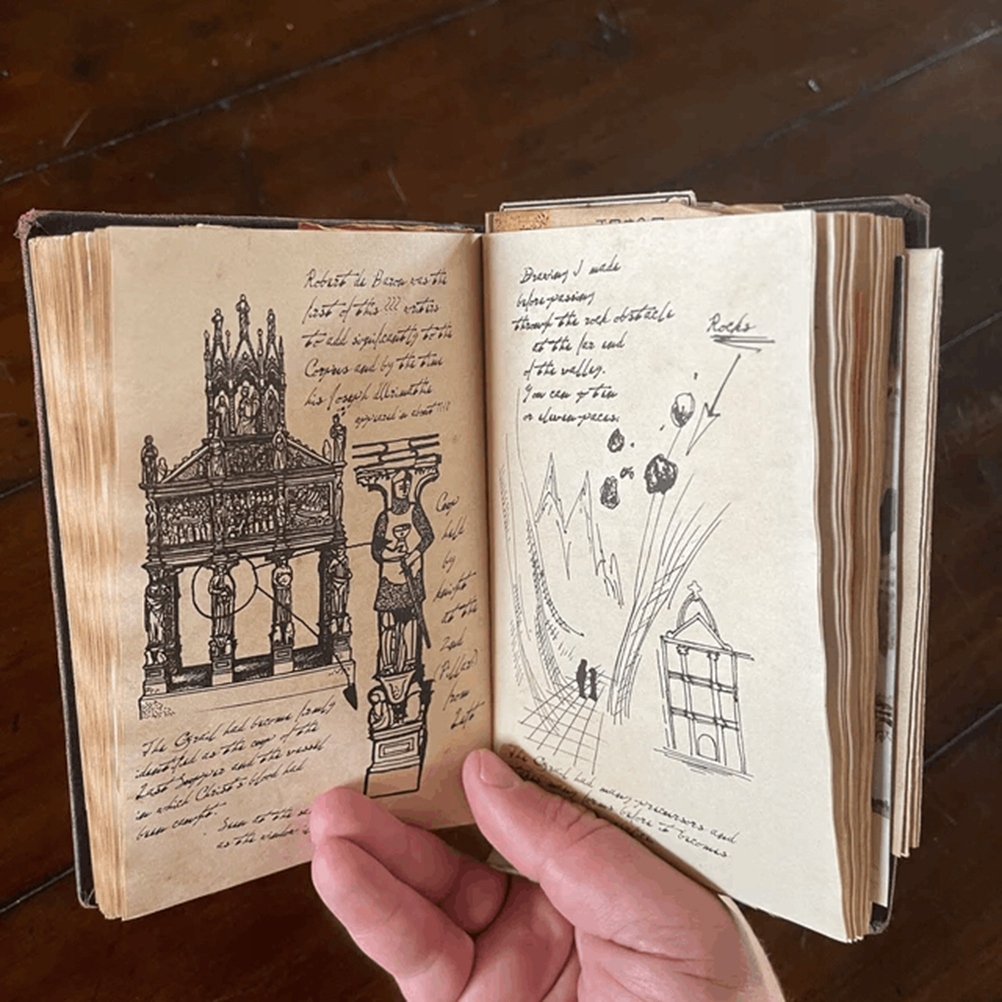 Robert de Baron was the
first of this ??? writers
to add significantly to the
Corpus and by the time
his Joseph d'Arimathe
appeared in about
Cup
held
by
knight
at the
2nd
(Pillar?)
from
Left
The Grail had become firmly
identified as the cup of the
Last Supper and the vessel
in which Christ's blood had
been caught.
Seen at the
as the
Drawing I made
before passing
through the rock obstacle
at the far end
of the valley.
You can go ten
or eleven paces.
Rocks
The Grail had many precursors and
forms before it becomes